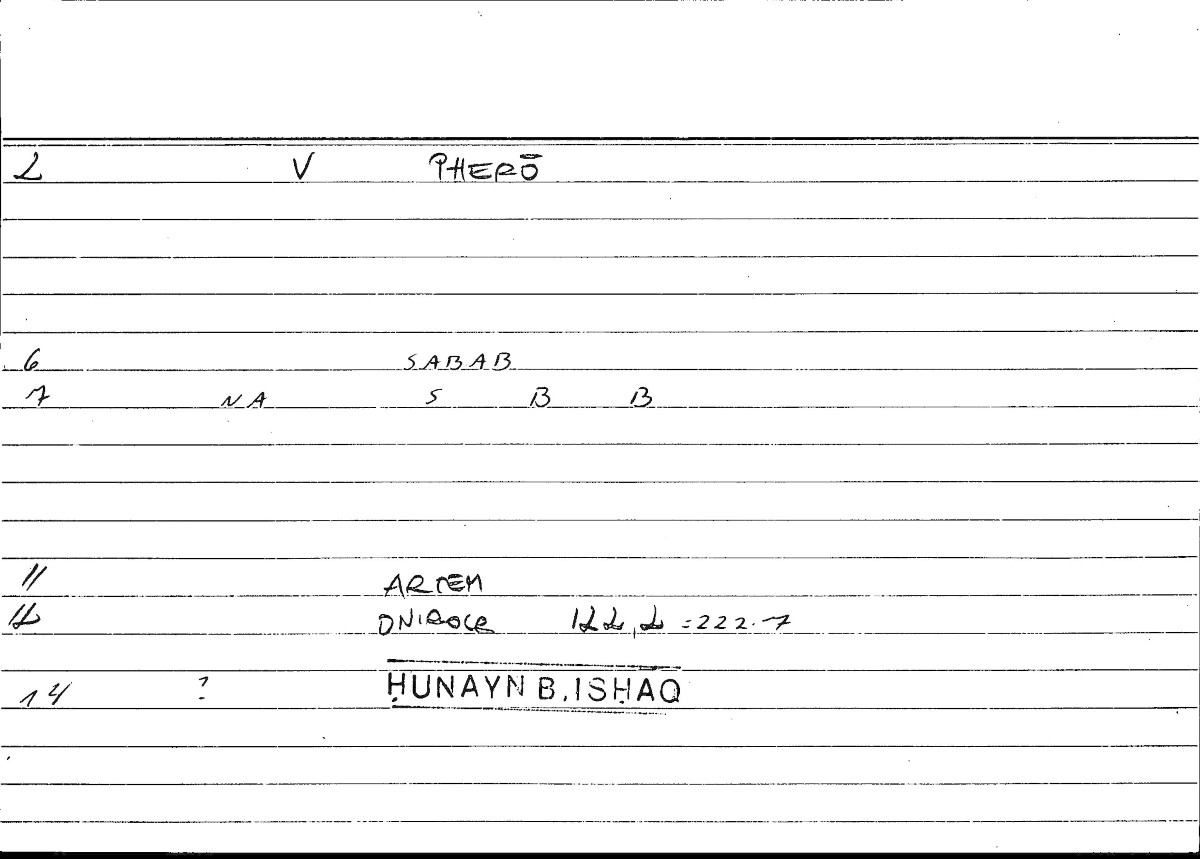 2 V PHERŌ
6 SABAB
7 NA S B B
11 ARTEM
12 ONIROCR 122,2 =222.7
14 ? ḤUNAYN B. ISḤAQ